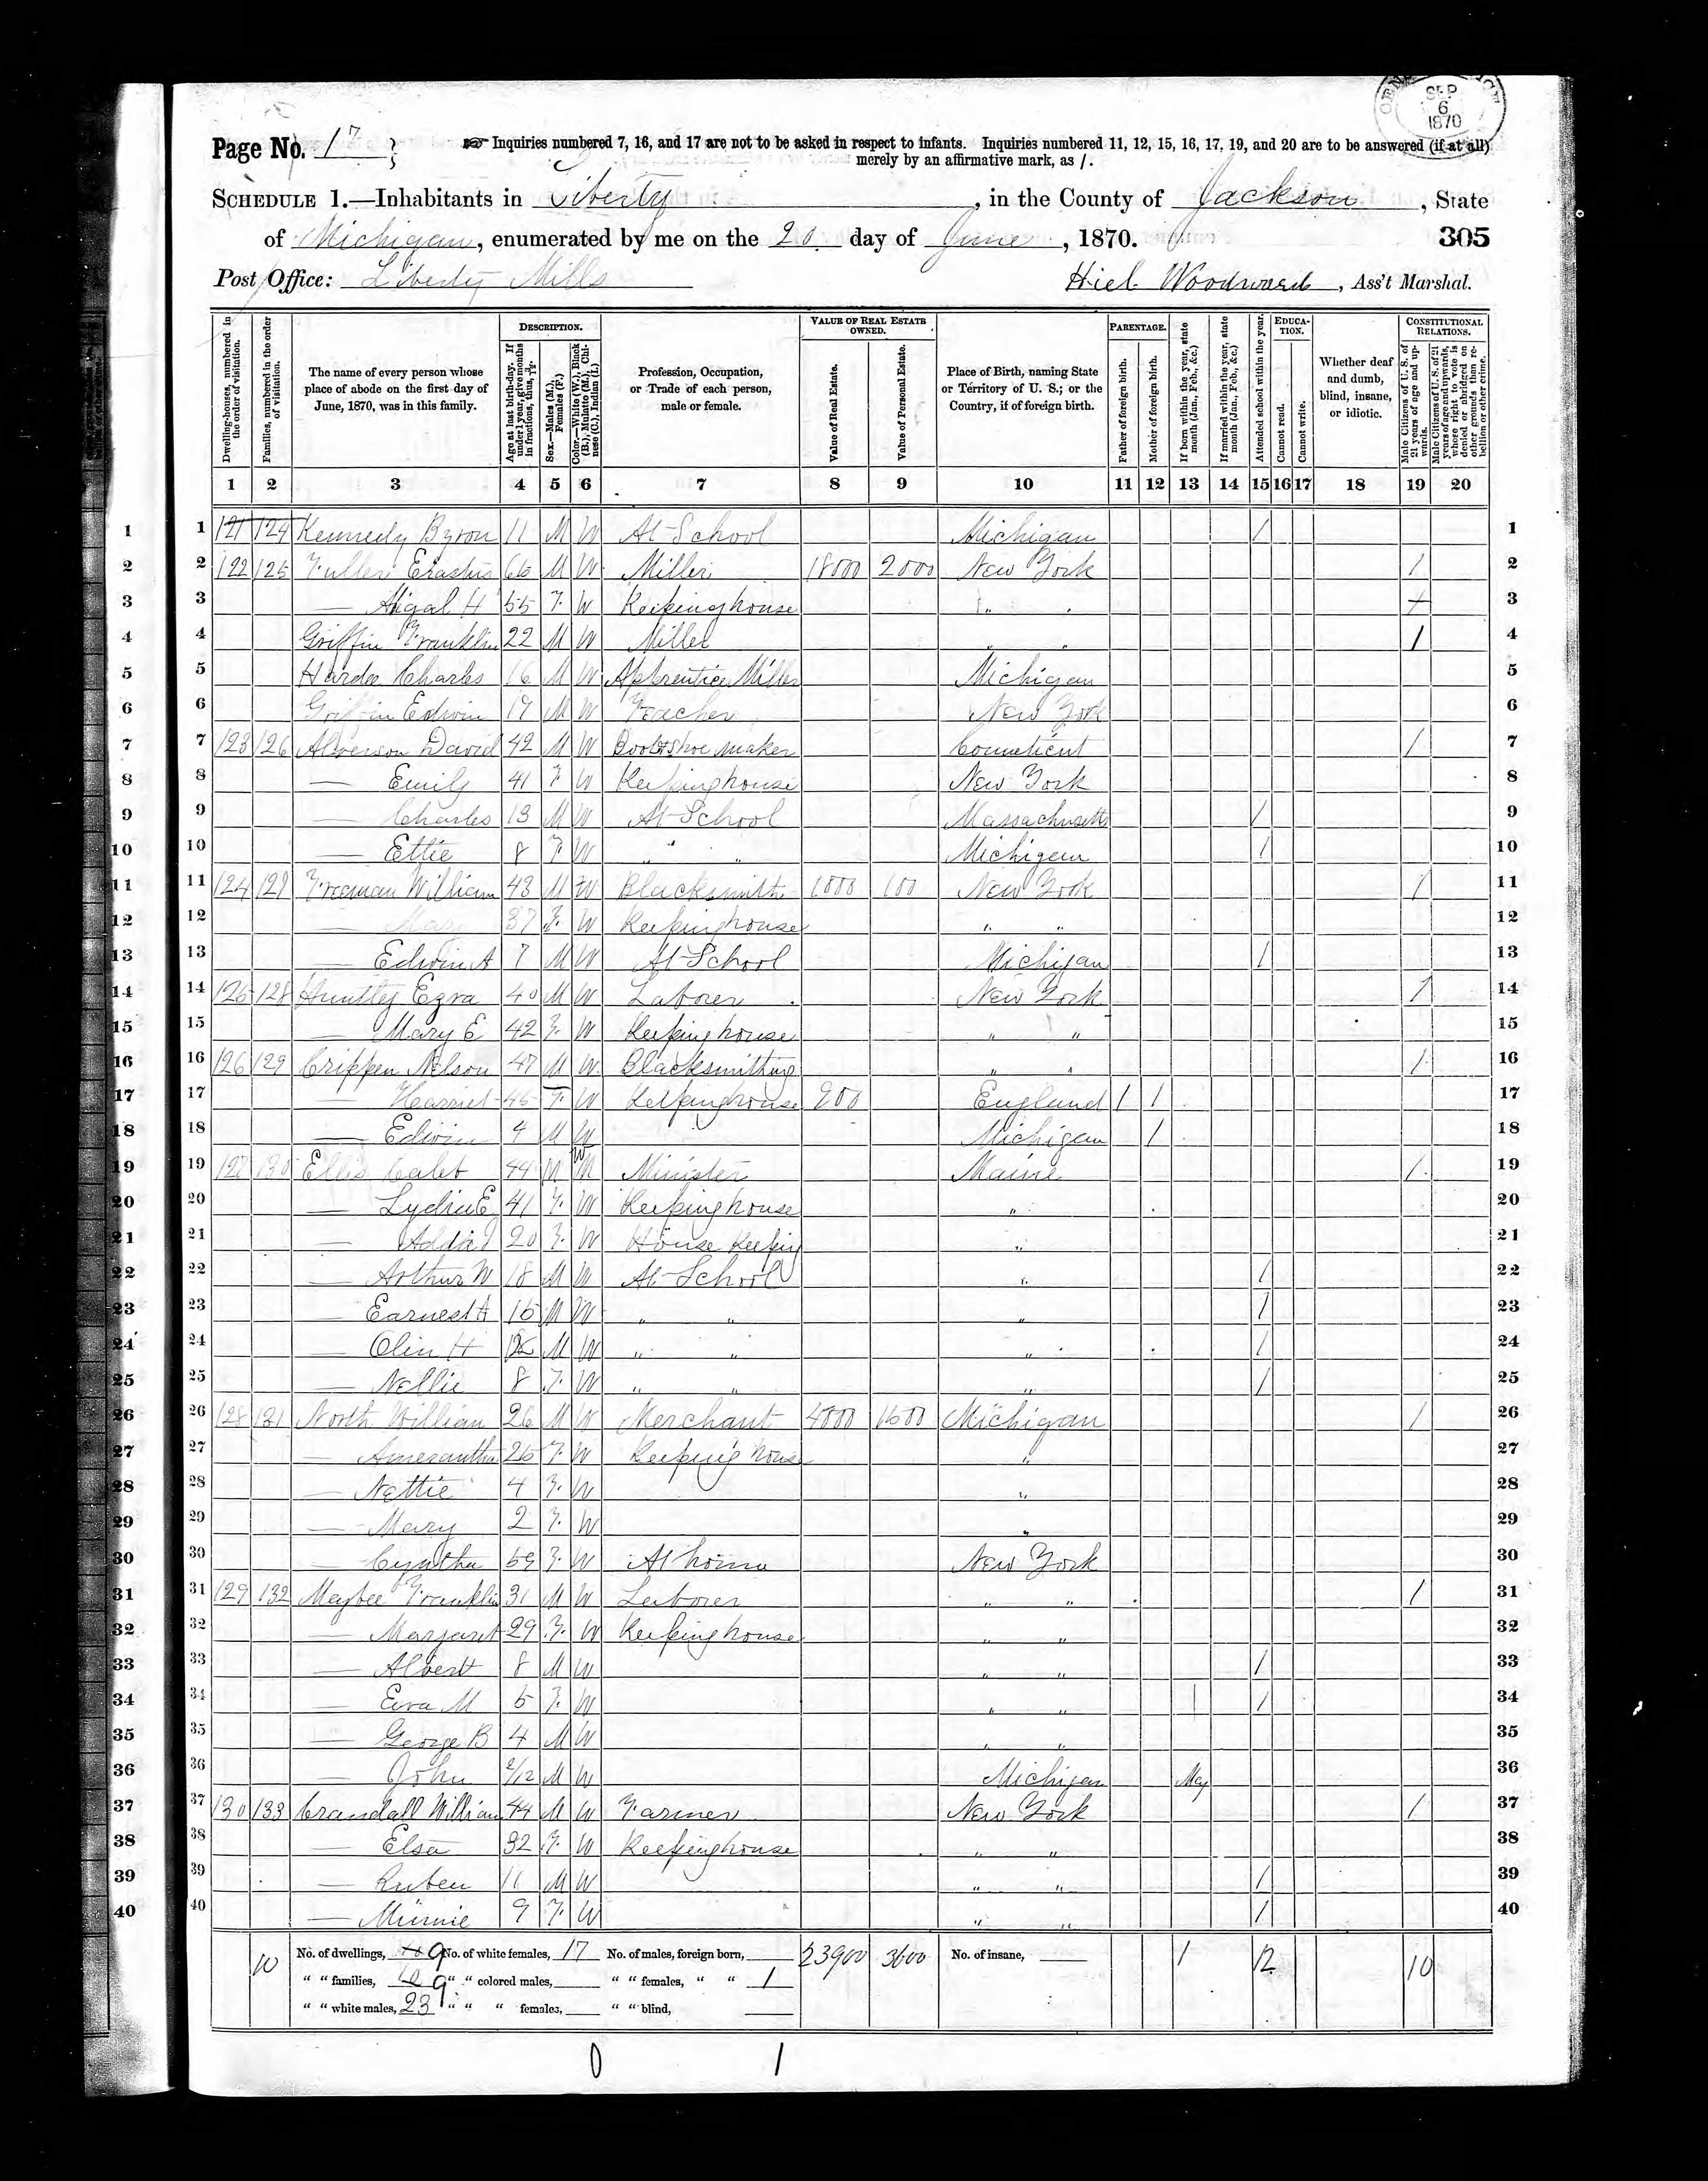 CEN SEP 6 1870 ICE
Page No. 17
Inquiries numbered 7, 16, and 17 are not to be asked in respect to infants. Inquiries numbered 11, 12, 15, 16, 17, 19, and 20 are to be answered (if at all)
merely by an affirmative mark, as /.
SCHEDULE 1.—Inhabitants in Liberty, in the County of Jackson, State
of Michigan, enumerated by me on the 20 day of June, 1870. 305
Post Office: Liberty Mills Hiel Woodward, Ass't Marshal.
Dwelling-houses, numbered in the order of visitation.
Families, numbered in the order of visitation.
The name of every person whose place of abode on the first day of June, 1870, was in this family.
DESCRIPTION.
Age at last birth-day. If under 1 year, give months in fractions, thus, 3/12.
Sex.—Males (M.), Females (F.)
Color.—White (W.), Black (B.), Mulatto (M.), Chinese (C.), Indian (I.)
Profession, Occupation, or Trade of each person, male or female.
VALUE OF REAL ESTATE OWNED.
Value of Real Estate.
Value of Personal Estate.
Place of Birth, naming State or Territory of U. S.; or the Country, if of foreign birth.
PARENTAGE.
Father of foreign birth.
Mother of foreign birth.
If born within the year, state month (Jan., Feb., &c.)
If married within the year, state month (Jan., Feb., &c.)
Attended school within the year.
EDUCATION.
Cannot read.
Cannot write.
Whether deaf and dumb, blind, insane, or idiotic.
CONSTITUTIONAL RELATIONS.
Male Citizens of U. S. of 21 years of age and upwards.
Male Citizens of U. S. of 21 years of age and upwards, where right to vote is denied or abridged on other grounds than rebellion or other crime.
1 2 3 4 5 6 7 8 9 10 11 12 13 14 15 16 17 18 19 20
1 1 121 124 Kennedy Byron 11 M W At School Michigan / 1
2 2 122 125 Fuller Erastus 65 M W Miller 18000 2000 New York / 2
3 3 — Abigal H 55 F W Keeping house " " 3
4 4 Griffin Franklin 22 M W Miller " " / 4
5 5 Charles 16 M W Apprentice Miller Michigan 5
6 6 Griffin Edwin 19 M W Teacher New York 6
7 7 123 126 Alverson David 42 M W Boot & shoe maker Conneticut / 7
8 8 — Emily 41 F W Keeping house New York 8
9 9 — Charles 13 M W At School Massachusetts / 9
10 10 — Ettie 8 F W " " Michigan / 10
11 11 124 127 Freeman William 43 M W Blacksmith 1000 100 New York / 11
12 12 — Mary 37 F W Keeping house " " 12
13 13 — Edwin A 7 M W At School Michigan / 13
14 14 125 128 Huntley Ezra 40 M W Laborer New York / 14
15 15 — Mary E 42 F W Keeping house " " 15
16 16 126 129 Crippen Nelson 47 M W Blacksmithing " " / 16
17 17 — Harriet 45 F W Keeping house 900 England / / 17
18 18 — Edwin 4 M W Michigan / 18
19 19 127 130 Ellis Caleb 44 M W Minister Maine / 19
20 20 — Lydia E 41 F W Keeping house " 20
21 21 — Adda 20 F W House Keeping " 21
22 22 — Arthur W 18 M W At School " / 22
23 23 — Earnest A 15 M W " " " / 23
24 24 — Olin H M W " " " / 24
25 25 — Nellie 8 F W " " " / 25
26 26 128 131 North William 26 M W Merchant 4000 1600 Michigan / 26
27 27 — Amerantha 25 F W Keeping house " 27
28 28 — Nettie 4 F W " 28
29 29 — Mary 2 F W " 29
30 30 — Cyntha 59 F W At home New York 30
31 31 129 132 Maybee Franklin 31 M W Laborer " " / 31
32 32 — Margaret 29 F W Keeping house " " 32
33 33 — Albert 8 M W " " / 33
34 34 — Eva M 5 F W " " / / 34
35 35 — George B 4 M W " " 35
36 36 — John 2/12 M W Michigan May 36
37 37 130 133 Crandall William 44 M W Farmer New York / 37
38 38 — Elsa 32 F W Keeping house " " 38
39 39 — Ruben 11 M W " " / 39
40 40 — Minnie 9 F W " " / 40
10 No. of dwellings, 9 No. of white females, 17 No. of males, foreign born, 23900 3600 No. of insane, 1 12 10
" " families, 9 " " colored males, " " females, " " 1
" " white males, 23 " " " females, " " blind,
0 1